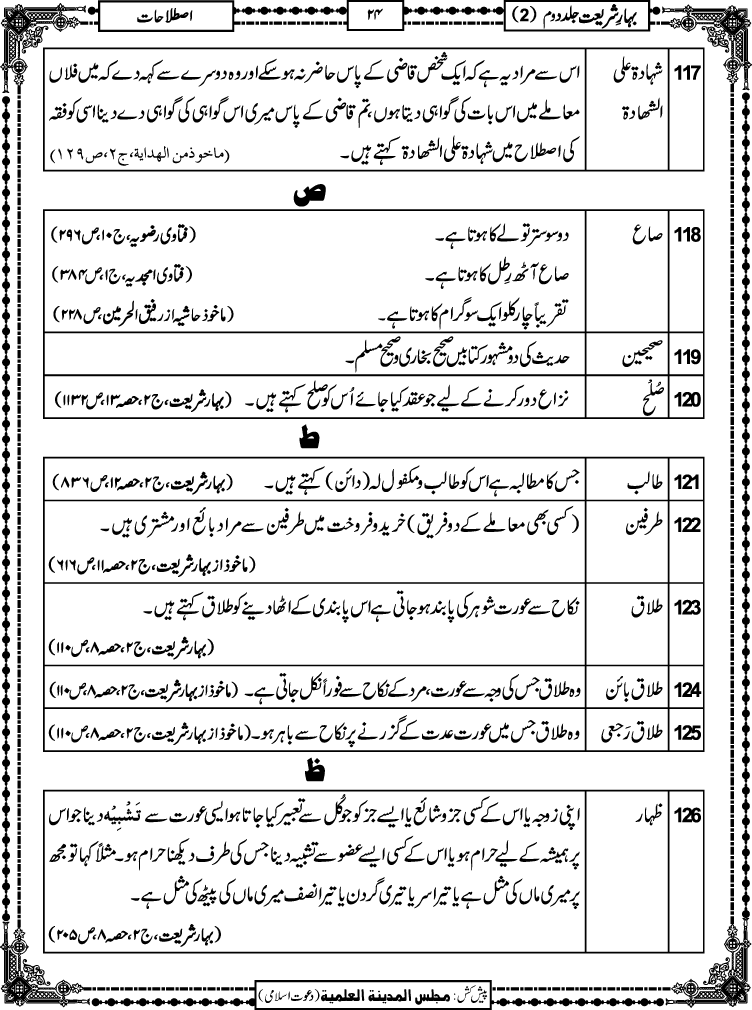 بہارِشریعت جلد دوم (2)
۲۴
اصطلاحات
117 شہادة علی اس سے مراد یہ ہے کہ ایک شخص قاضی کے پاس حاضر نہ ہوسکے اور وہ دوسرے سے کہہ دے کہ میں فلاں
الشهادة معاملے میں اس بات کی گواہی دیتا ہوں، تم قاضی کے پاس میری اس گواہی کی گواہی دے دینا اسی کو فقہ
کی اصطلاح میں شهادة علی الشهادة کہتے ہیں۔ (ماخوذ من الهداية، ج۲، ص۱۲۹)
ص
118 صاع دوسو ستر تولے کا ہوتا ہے۔ (فتاوی رضویہ، ج۱۰، ص۲۹۶)
صاع آٹھ رِطل کا ہوتا ہے۔ (فتاوی امجدیہ، ج۱، ص۳۸۴)
تقریباً چار کلو ایک سو گرام کا ہوتا ہے۔ (ماخوذ حاشیہ از رفیق الحرمین، ص۲۲۸)
119 صحیحین حدیث کی دو مشہور کتابیں صحیح بخاری و صحیح مسلم۔
120 صُلْح نزاع دور کرنے کے لیے جو عقد کیا جائے اُس کو صلح کہتے ہیں۔ (بہارشریعت، ج۲، حصہ۱۳، ص۱۱۳۲)
ط
121 طالب جس کا مطالبہ ہے اس کو طالب و مکفول لہ (دائن) کہتے ہیں۔ (بہارشریعت، ج۲، حصہ۱۲، ص۸۳۶)
122 طرفین (کسی بھی معاملے کے دو فریق) خرید و فروخت میں طرفین سے مراد بائع اور مشتری ہیں۔
(ماخوذ از بہارشریعت، ج۲، حصہ۱۱، ص۶۱۶)
123 طلاق نکاح سے عورت شوہر کی پابند ہو جاتی ہے اس پابندی کے اٹھا دینے کو طلاق کہتے ہیں۔
(بہارشریعت، ج۲، حصہ۸، ص۱۱۰)
124 طلاق بائن وہ طلاق جس کی وجہ سے عورت، مرد کے نکاح سے فوراً نکل جاتی ہے۔ (ماخوذ از بہارشریعت، ج۲، حصہ۸، ص۱۱۰)
125 طلاق رَجعی وہ طلاق جس میں عورت عدت کے گزرنے پر نکاح سے باہر ہو۔ (ماخوذ از بہارشریعت، ج۲، حصہ۸، ص۱۱۰)
ظ
126 ظہار اپنی زوجہ یا اس کے کسی جزو شائع یا ایسے جز کو جو کُل سے تعبیر کیا جاتا ہو ایسی عورت سے تَشْبِیْہ دینا جو اس
پر ہمیشہ کے لیے حرام ہو یا اس کے کسی ایسے عضو سے تشبیہ دینا جس کی طرف دیکھنا حرام ہو۔ مثلاً کہا تو مجھ
پر میری ماں کی مثل ہے یا تیرا سر یا تیری گردن یا تیرا نصف میری ماں کی پیٹھ کی مثل ہے۔
(بہارشریعت، ج۲، حصہ۸، ص۲۰۵)
پیش کش: مجلس المدينة العلمية (دعوت اسلامی)